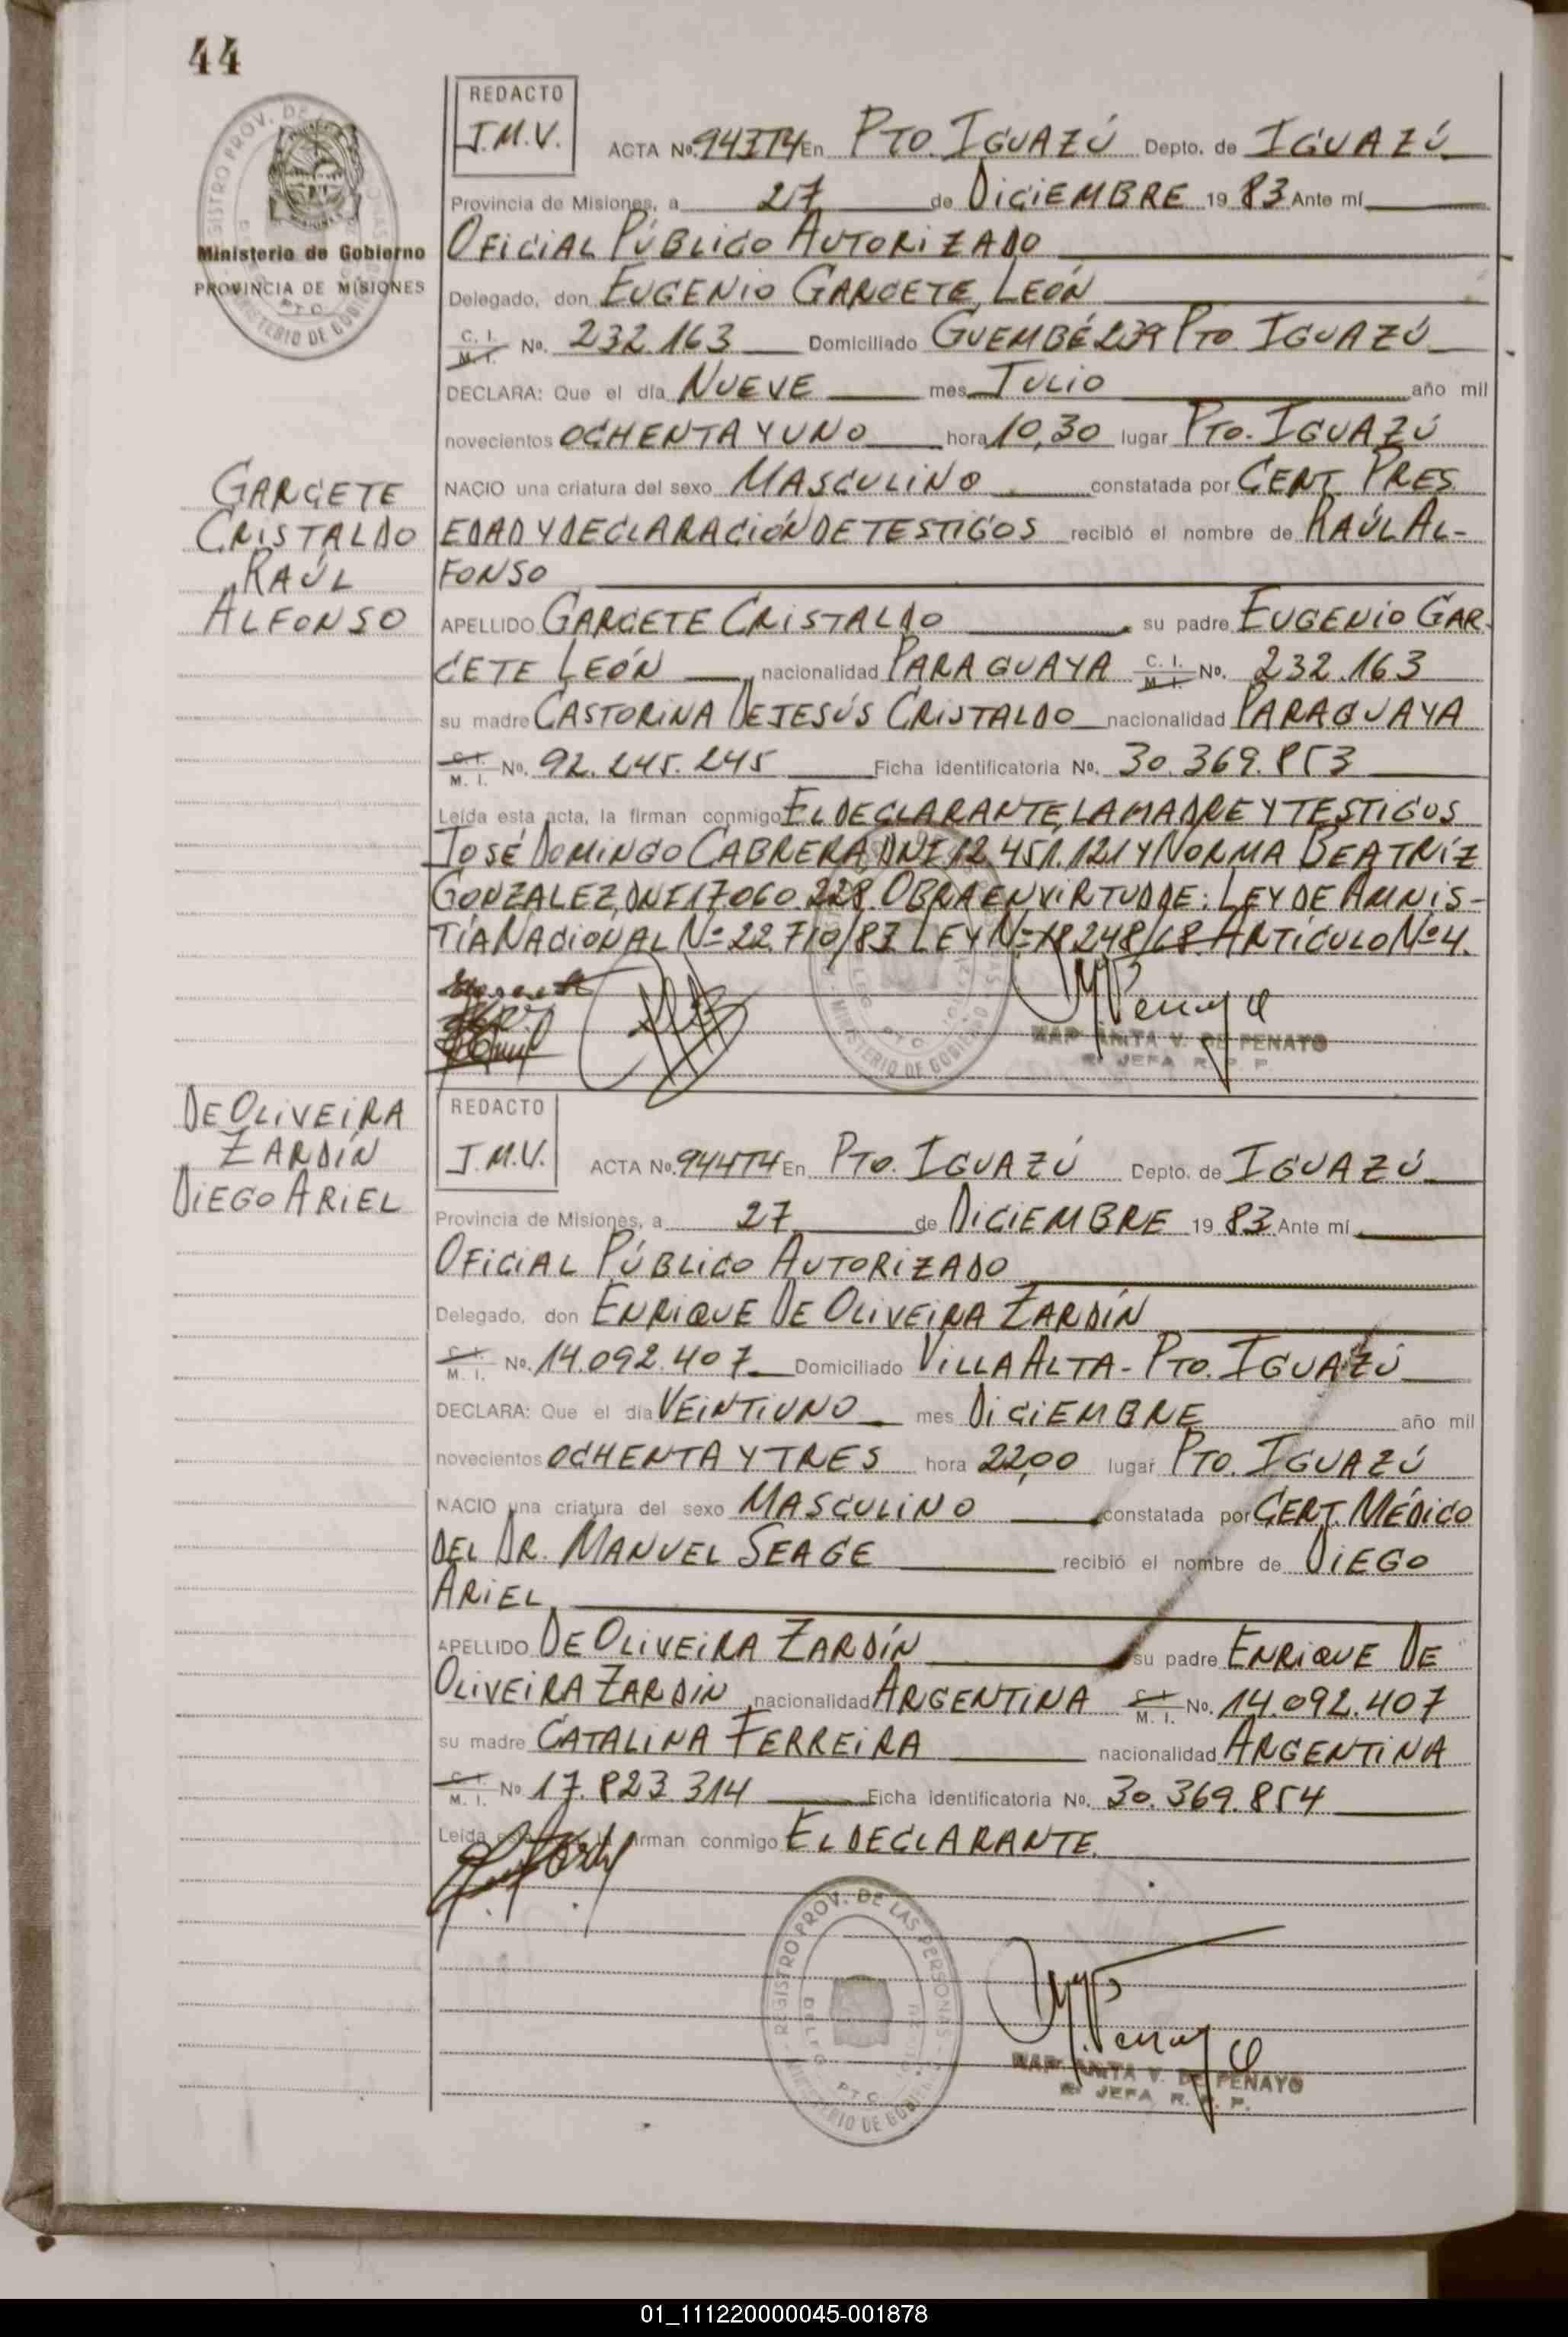 44
REGISTRO PROV. DE
MINISTERIO DE GOBIERNO
Ministerio de Gobierno
PROVINCIA DE MISIONES
REDACTO
J.M.V.
ACTA No. 943T4 En PTO. IGUAZÚ Depto. de IGUAZÚ
Provincia de Misiones, a 27 de DICIEMBRE 19 83 Ante mí
OFICIAL PÚBLICO AUTORIZADO
Delegado, don EUGENIO GARCETE LEÓN
C. I. M. I. No. 232.163 Domiciliado GUEMBÉ PTO. IGUAZÚ
DECLARA: Que el día NUEVE mes JULIO año mil
novecientos OCHENTA Y UNO hora 10,30 lugar PTO. IGUAZÚ
NACIO una criatura del sexo MASCULINO constatada por CERT. PRES.
EDAD Y DECLARACIÓN DE TESTIGOS recibió el nombre de RAÚL AL-
FONSO
APELLIDO GARCETE CRISTALDO su padre EUGENIO GAR-
CETE LEÓN nacionalidad PARAGUAYA C. I. M. I. No. 232.163
su madre CASTORINA DE JESÚS CRISTALDO nacionalidad PARAGUAYA
C. I. M. I. No. 92.245.245 Ficha identificatoria No. 30.369.853
Leída esta acta, la firman conmigo EL DECLARANTE, LA MADRE Y TESTIGOS
JOSÉ DOMINGO CABRERA DNI 12.451.121 Y NORMA BEATRÍZ
GONZALEZ, DNI 17.060.228. OBRA EN VIRTUD DE: LEY DE AMNIS-
TÍA NACIONAL Nº 22.710/83 LEY Nº 18248/68 ARTÍCULO Nº 4.
GARCETE
CRISTALDO
RAÚL
ALFONSO
ANITA V. DE PENAYO
JEFA R. P. P.
DE OLIVEIRA
ZARDÍN
DIEGO ARIEL
REDACTO
J.M.V.
ACTA No. 944T4 En PTO. IGUAZÚ Depto. de IGUAZÚ
Provincia de Misiones, a 27 de DICIEMBRE 19 83 Ante mí
OFICIAL PÚBLICO AUTORIZADO
Delegado, don ENRIQUE DE OLIVEIRA ZARDÍN
C. I. M. I. No. 14.092.407 Domiciliado VILLA ALTA - PTO. IGUAZÚ
DECLARA: Que el día VEINTIUNO mes DICIEMBRE año mil
novecientos OCHENTA Y TRES hora 22,00 lugar PTO. IGUAZÚ
NACIO una criatura del sexo MASCULINO constatada por CERT. MÉDICO
DEL DR. MANUEL SEAGE recibió el nombre de DIEGO
ARIEL
APELLIDO DE OLIVEIRA ZARDÍN su padre ENRIQUE DE
OLIVEIRA ZARDIN nacionalidad ARGENTINA C. I. M. I. No. 14.092.407
su madre CATALINA FERREIRA nacionalidad ARGENTINA
C. I. M. I. No 17.823.314 Ficha identificatoria No. 30.369.854
Leída firman conmigo EL DECLARANTE.
REGISTRO PROV. DE LAS PERSONAS
MINISTERIO DE GOBIERNO
ANITA V. DE PENAYO
JEFA R. P. P.
01_111220000045-001878